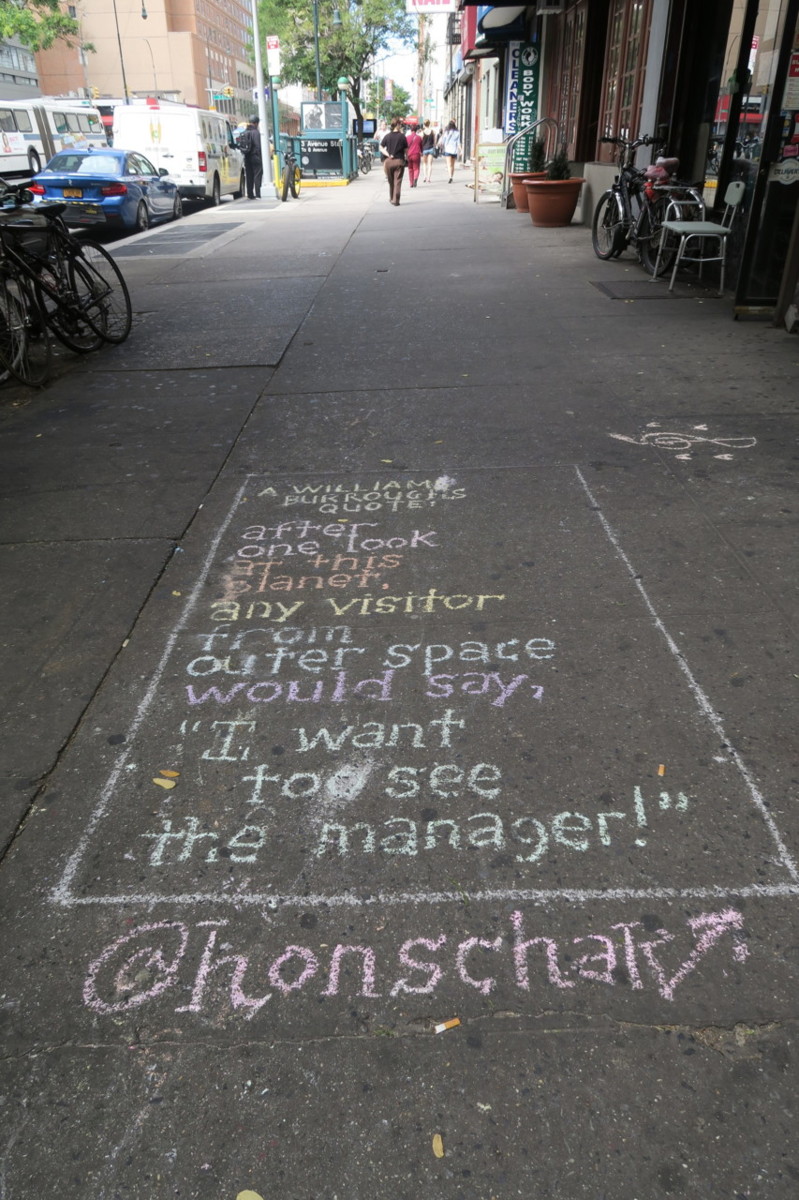 NAIL
CLEANERS
BODY WORK
3 Avenue Sta
A WILLIAM
BURROUGHS
QUOTE:
after
one look
at this
planet,
any visitor
from
outer space
would say,
"I want
to see
the manager!"